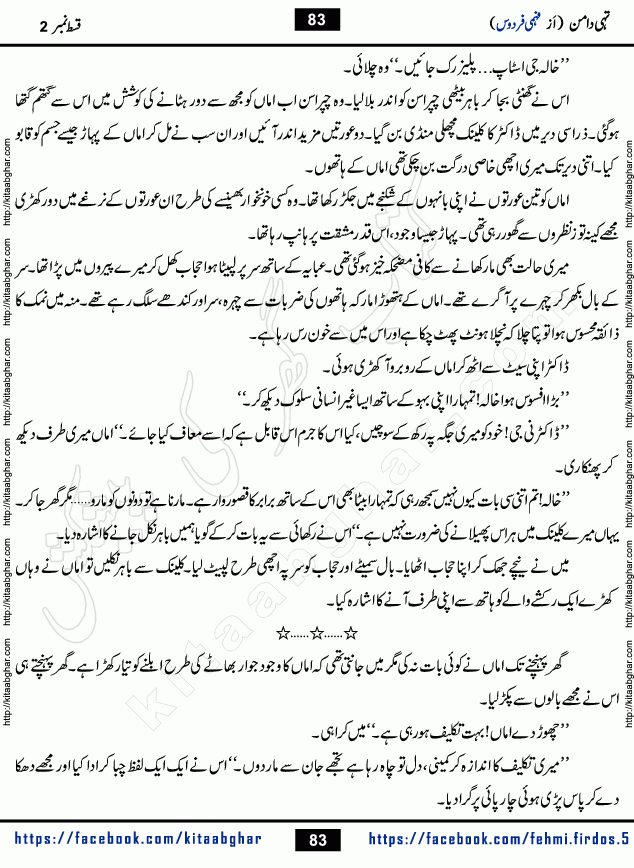 قسط نمبر 2
83
تہی دامن (از فہمی فردوس)
’’خالہ جی اسٹاپ... پلیز رک جائیں۔‘‘ وہ چلائی۔
اس نے گھنٹی بجا کر باہر بیٹھی چپراسن کو اندر بلا لیا۔ وہ چپراسن اب اماں کو مجھ سے دور ہٹانے کی کوشش میں اس سے گتھم گتھا
ہوگئی۔ ذرا سی دیر میں ڈاکٹر کا کلینک مچھلی منڈی بن گیا۔ دو عورتیں مزید اندر آئیں اور ان سب نے مل کر اماں کے پہاڑ جیسے جسم کو قابو
کیا۔ اتنی دیر تک میری اچھی خاصی درگت بن چکی تھی اماں کے ہاتھوں۔
اماں کو تین عورتوں نے اپنی بانہوں کے شکنجے میں جکڑ رکھا تھا۔ وہ کسی خونخوار بھینسے کی طرح ان عورتوں کے نرغے میں دور کھڑی
مجھے کینہ توز نظروں سے گھور رہی تھی۔ پہاڑ جیسا وجود، اس قدر مشقت پر ہانپ رہا تھا۔
میری حالت بھی مار کھانے سے کافی مضحکہ خیز ہوگئی تھی۔ عبایہ کے ساتھ سر پر لپیٹا ہوا حجاب کھل کر میرے پیروں میں پڑا تھا۔ سر
کے بال بکھر کر چہرے پر آ گرے تھے۔ اماں کے ہتھوڑا مار کہ ہاتھوں کی ضربات سے چہرہ، سر اور کندھے سلگ رہے تھے۔ منہ میں نمک کا
ذائقہ محسوس ہوا تو پتا چلا کہ نچلا ہونٹ پھٹ چکا ہے اور اس میں سے خون رس رہا ہے۔
ڈاکٹر اپنی سیٹ سے اٹھ کر اماں کے روبرو آ کھڑی ہوئی۔
’’بڑا افسوس ہوا خالہ! تمہارا اپنی بہو کے ساتھ ایسا غیر انسانی سلوک دیکھ کر۔‘‘
’’ڈاکٹرنی جی! خود کو میری جگہ پہ رکھ کے سوچیں، کیا اس کا جرم اس قابل ہے کہ اسے معاف کیا جائے۔‘‘ اماں میری طرف دیکھ
کر پھنکاری۔
’’خالہ! تم اتنی سی بات کیوں نہیں سمجھ رہی کہ تمہارا بیٹا بھی اس کے ساتھ برابر کا قصوروار ہے۔ مارنا ہے تو دونوں کو مارو...... مگر گھر جا کر۔
یہاں میرے کلینک میں ہراس پھیلانے کی ضرورت نہیں ہے۔‘‘ اس نے رکھائی سے یہ بات کر کے گویا ہمیں باہر نکل جانے کا اشارہ دیا۔
میں نے نیچے جھک کر اپنا حجاب اٹھایا۔ بال سمیٹے اور حجاب کو سر پہ اچھی طرح لپیٹ لیا۔ کلینک سے باہر نکلیں تو اماں نے وہاں
کھڑے ایک رکشے والے کو ہاتھ سے اپنی طرف آنے کا اشارہ کیا۔
☆......☆......☆
گھر پہنچنے تک اماں نے کوئی بات نہ کی مگر میں جانتی تھی کہ اماں کا وجود جوار بھاٹے کی طرح ابلنے کو تیار کھڑا ہے۔ گھر پہنچتے ہی
اس نے مجھے بالوں سے پکڑ لیا۔
’’چھوڑ دے اماں! بہت تکلیف ہو رہی ہے۔‘‘ میں کراہی۔
’’میری تکلیف کا اندازہ کر کمینی، دل تو چاہ رہا ہے تجھے جان سے مار دوں۔‘‘ اس نے ایک ایک لفظ چبا کر ادا کیا اور مجھے دھکا
دے کر پاس پڑی ہوئی چارپائی پر گرا دیا۔
http://kitaabghar.com http://kitaabghar.com http://kitaabghar.com http://kitaabghar.com http://kitaabghar.com http://kitaabghar.com
http://kitaabghar.com http://kitaabghar.com http://kitaabghar.com http://kitaabghar.com http://kitaabghar.com http://kitaabghar.com
کتاب گھر کی پیشکش
kitaabghar.com
https://facebook.com/kitaabghar
83
https://facebook.com/fehmi.firdos.5